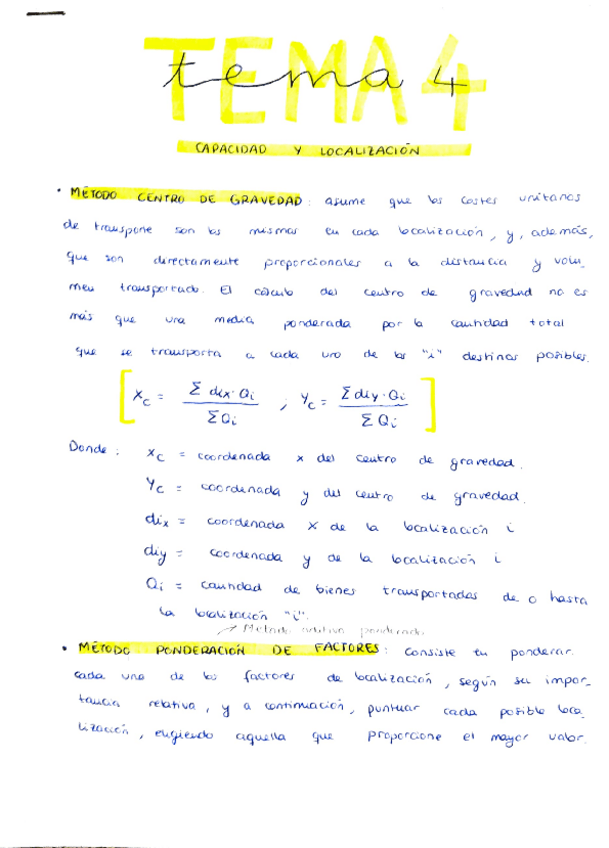 TEMA 4
tema 4
CAPACIDAD Y LOCALIZACIÓN
• MÉTODO CENTRO DE GRAVEDAD: asume que los costes unitarios
de transporte son los mismos en cada localización, y, además,
que son directamente proporcionales a la distancia y volu-
men transportado. El cálculo del centro de gravedad no es
más que una media ponderada por la cantidad total
que se transporta a cada uno de los "i" destinos posibles.
[ Xc = Σ dix · Qi / Σ Qi ; Yc = Σ diy · Qi / Σ Qi ]
Donde: Xc = coordenada x del centro de gravedad.
Yc = coordenada y del centro de gravedad.
dix = coordenada X de la localización i
diy = coordenada y de la localización i
Qi = cantidad de bienes transportados de o hasta
la localización "i".
→ Método aditivo ponderado
• MÉTODO PONDERACIÓN DE FACTORES: Consiste en ponderar
cada uno de los factores de localización, según su impor-
tancia relativa, y a continuación, puntuar cada posible loca-
lización, eligiendo aquella que proporcione el mayor valor.